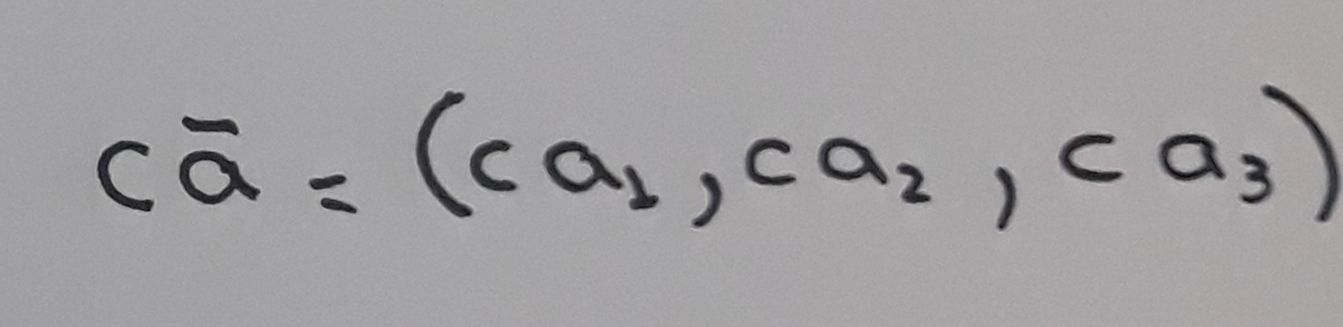 cā = (ca₁, ca₂, ca₃)